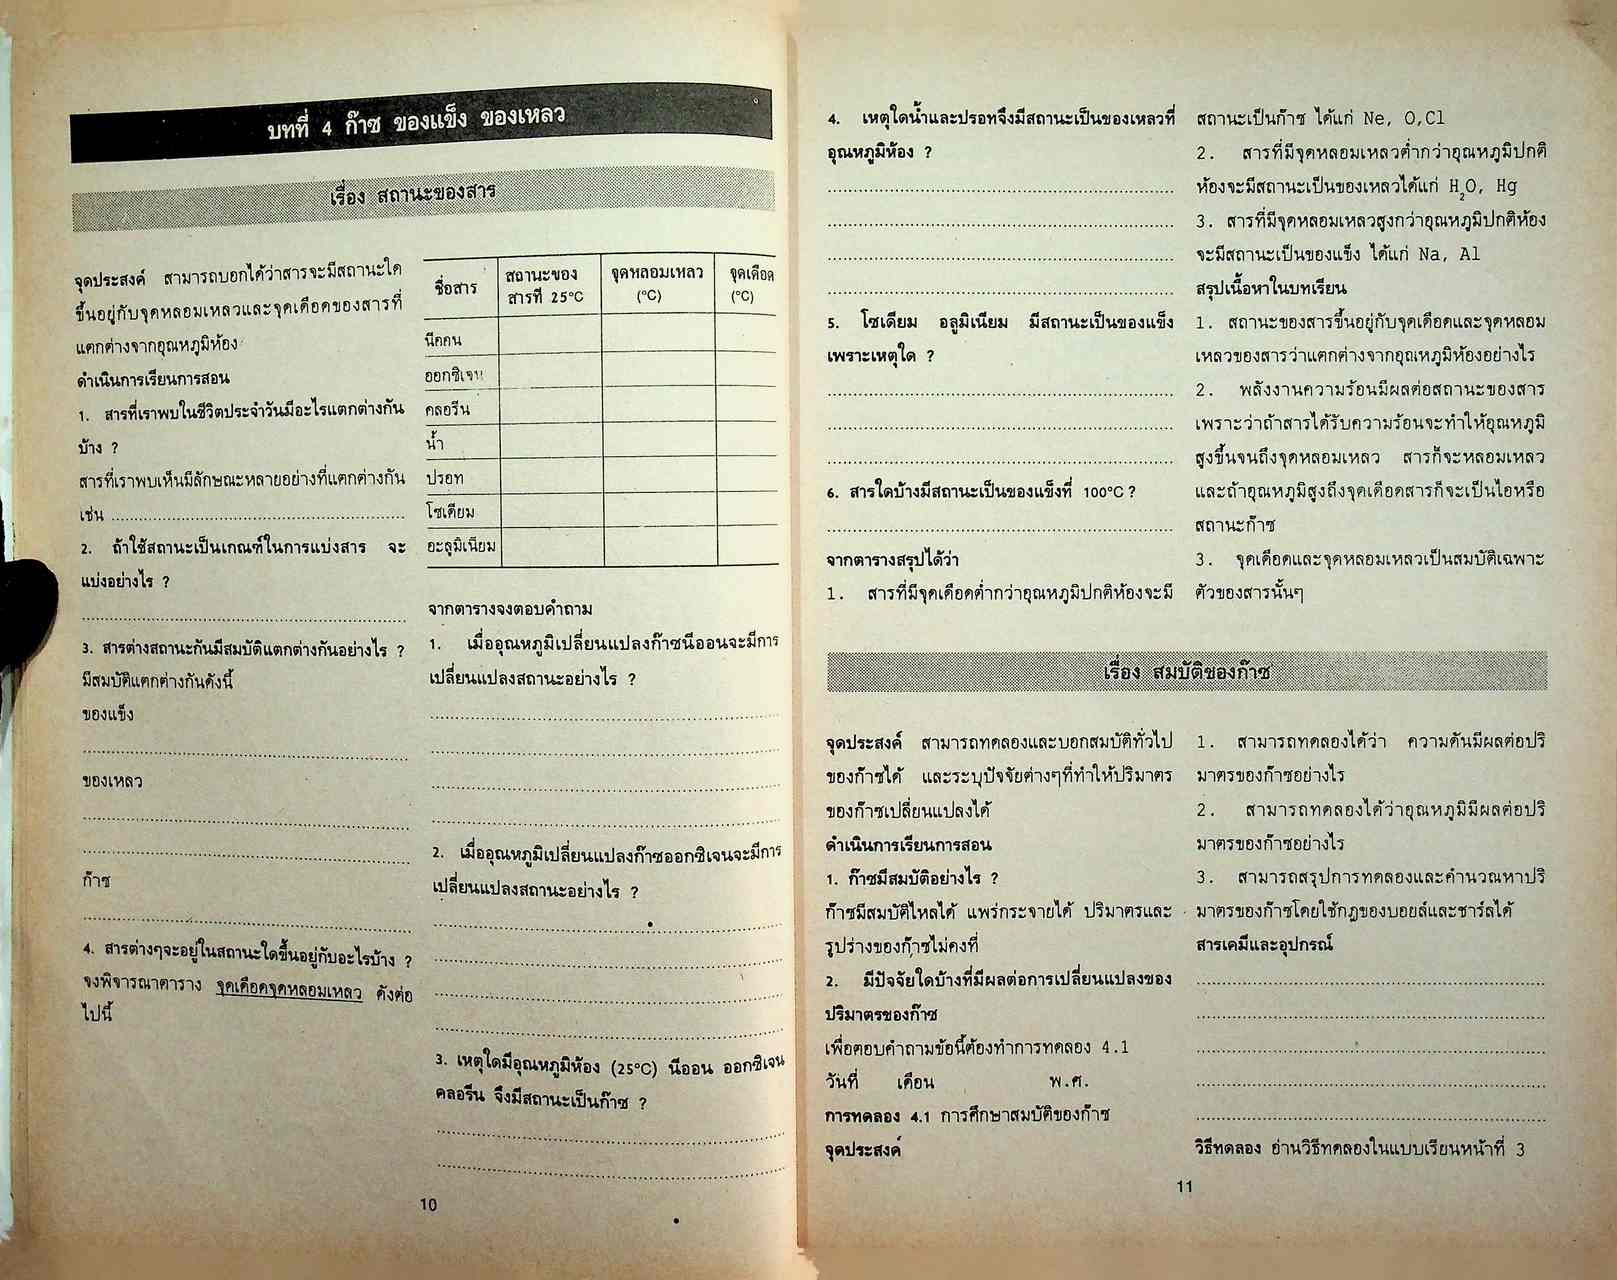 บทที่ 4 ก๊าซ ของแข็ง ของเหลว
เรื่อง สถานะของสาร
จุดประสงค์ สามารถบอกได้ว่าสารจะมีสถานะใด
ขึ้นอยู่กับจุดหลอมเหลวและจุดเดือดของสารที่
แตกต่างจากอุณหภูมิห้อง
ดำเนินการเรียนการสอน
1. สารที่เราพบในชีวิตประจำวันมีอะไรแตกต่างกัน
บ้าง ?
สารที่เราพบเห็นมีลักษณะหลายอย่างที่แตกต่างกัน
เช่น ........................................
2. ถ้าใช้สถานะเป็นเกณฑ์ในการแบ่งสาร จะ
แบ่งอย่างไร ?
........................................
3. สารต่างสถานะกันมีสมบัติแตกต่างกันอย่างไร ?
มีสมบัติแตกต่างกันดังนี้
ของแข็ง
........................................
ของเหลว
........................................
........................................
ก๊าซ
........................................
4. สารต่างๆจะอยู่ในสถานะใดขึ้นอยู่กับอะไรบ้าง ?
จงพิจารณาตาราง จุดเดือดจุดหลอมเหลว ดังต่อ
ไปนี้
ชื่อสาร สถานะของ จุดหลอมเหลว จุดเดือด
สารที่ 25°C (°C) (°C)
นีคกน
ออกซิเจน
คลอรีน
น้ำ
ปรอท
โซเดียม
อะลูมิเนียม
จากตารางจงตอบคำถาม
1. เมื่ออุณหภูมิเปลี่ยนแปลงก๊าซนีออนจะมีการ
เปลี่ยนแปลงสถานะอย่างไร ?
........................................
........................................
........................................
........................................
2. เมื่ออุณหภูมิเปลี่ยนแปลงก๊าซออกซิเจนจะมีการ
เปลี่ยนแปลงสถานะอย่างไร ?
........................................
........................................
........................................
........................................
3. เหตุใดมีอุณหภูมิห้อง (25°C) นีออน ออกซิเจน
คลอรีน จึงมีสถานะเป็นก๊าซ ?
........................................
........................................
10
4. เหตุใดน้ำและปรอทจึงมีสถานะเป็นของเหลวที่
อุณหภูมิห้อง ?
........................................
........................................
........................................
........................................
5. โซเดียม อลูมิเนียม มีสถานะเป็นของแข็ง
เพราะเหตุใด ?
........................................
........................................
........................................
6. สารใดบ้างมีสถานะเป็นของแข็งที่ 100°C ?
........................................
จากตารางสรุปได้ว่า
1. สารที่มีจุดเดือดต่ำกว่าอุณหภูมิปกติห้องจะมี
สถานะเป็นก๊าซ ได้แก่ Ne, O,Cl
2. สารที่มีจุดหลอมเหลวต่ำกว่าอุณหภูมิปกติ
ห้องจะมีสถานะเป็นของเหลวได้แก่ H₂O, Hg
3. สารที่มีจุดหลอมเหลวสูงกว่าอุณหภูมิปกติห้อง
จะมีสถานะเป็นของแข็ง ได้แก่ Na, Al
สรุปเนื้อหาในบทเรียน
1. สถานะของสารขึ้นอยู่กับจุดเดือดและจุดหลอม
เหลวของสารว่าแตกต่างจากอุณหภูมิห้องอย่างไร
2. พลังงานความร้อนมีผลต่อสถานะของสาร
เพราะว่าถ้าสารได้รับความร้อนจะทำให้อุณหภูมิ
สูงขึ้นจนถึงจุดหลอมเหลว สารก็จะหลอมเหลว
และถ้าอุณหภูมิสูงถึงจุดเดือดสารก็จะเป็นไอหรือ
สถานะก๊าซ
3. จุดเดือดและจุดหลอมเหลวเป็นสมบัติเฉพาะ
ตัวของสารนั้นๆ
เรื่อง สมบัติของก๊าซ
จุดประสงค์ สามารถทดลองและบอกสมบัติทั่วไป
ของก๊าซได้ และระบุปัจจัยต่างๆที่ทำให้ปริมาตร
ของก๊าซเปลี่ยนแปลงได้
ดำเนินการเรียนการสอน
1. ก๊าซมีสมบัติอย่างไร ?
ก๊าซมีสมบัติไหลได้ แพร่กระจายได้ ปริมาตรและ
รูปร่างของก๊าซไม่คงที่
2. มีปัจจัยใดบ้างที่มีผลต่อการเปลี่ยนแปลงของ
ปริมาตรของก๊าซ
เพื่อตอบคำถามข้อนี้ต้องทำการทดลอง 4.1
วันที่ เดือน พ.ศ.
การทดลอง 4.1 การศึกษาสมบัติของก๊าซ
จุดประสงค์
1. สามารถทดลองได้ว่า ความดันมีผลต่อปริ
มาตรของก๊าซอย่างไร
2. สามารถทดลองได้ว่าอุณหภูมิมีผลต่อปริ
มาตรของก๊าซอย่างไร
3. สามารถสรุปการทดลองและคำนวณหาปริ
มาตรของก๊าซโดยใช้กฎของบอยล์และชาร์ลได้
สารเคมีและอุปกรณ์
........................................
........................................
........................................
........................................
........................................
วิธีทดลอง อ่านวิธีทดลองในแบบเรียนหน้าที่ 3
11